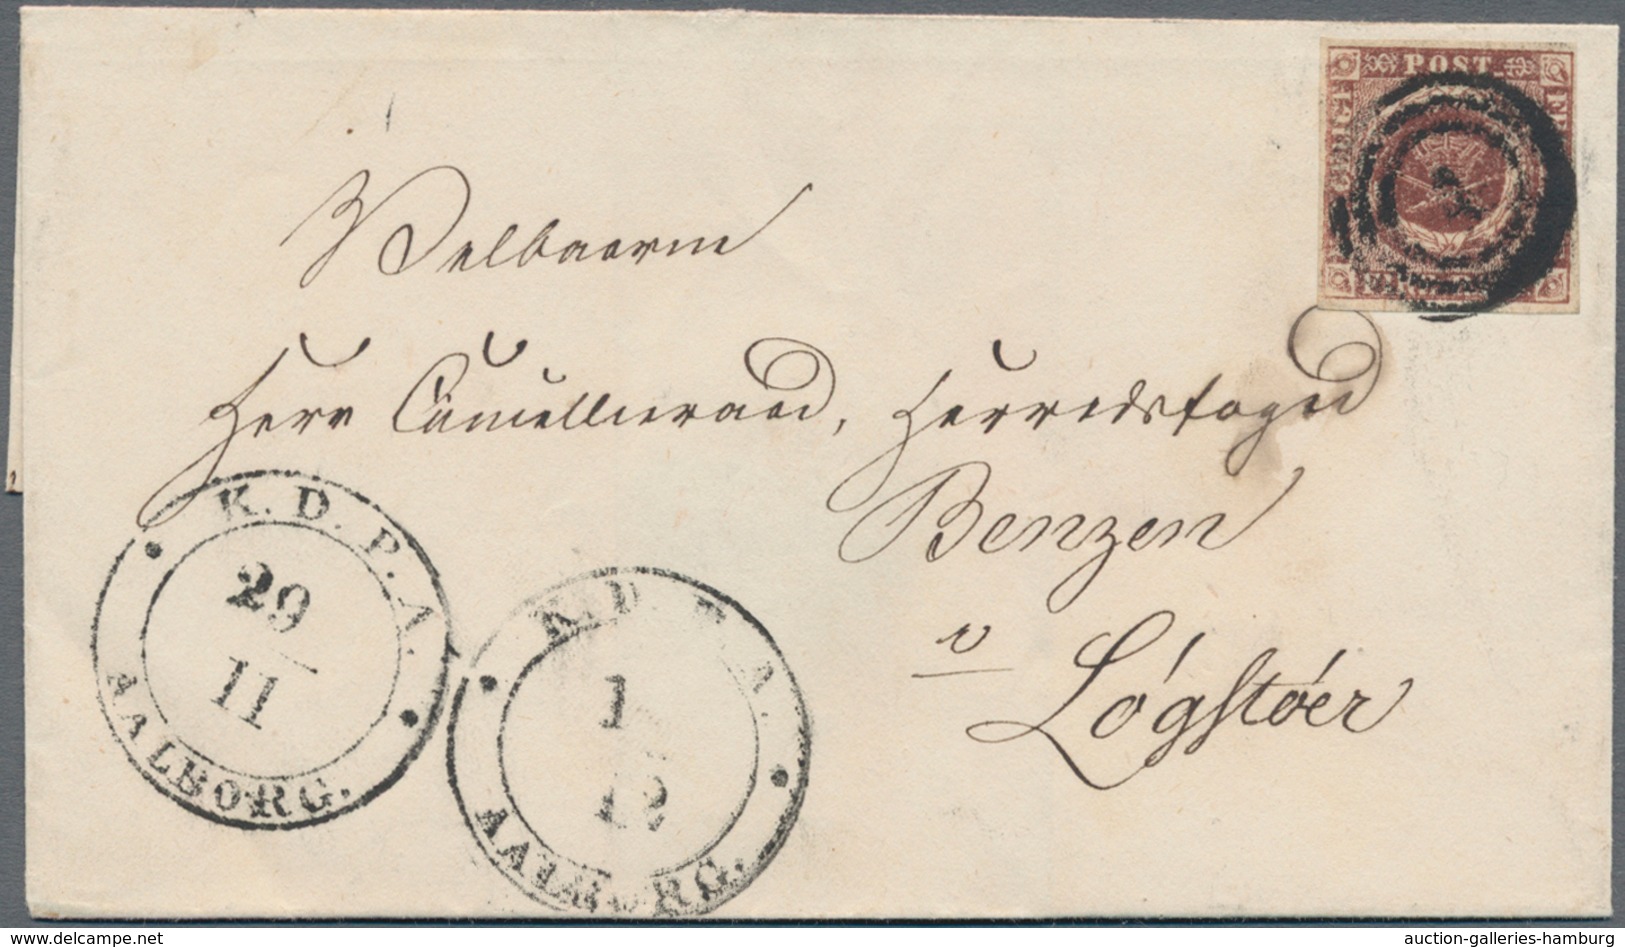 POST
FRIMÆRKE
Velbaarne
Herr Cancelliraad, Herredsfoged
Benzen
v
Lógstóer
K. D. P. A.
29
11
AALBORG.
K. D. P. A.
1
12
AALBORG.
delcampe.net
auction-galleries-hamburg